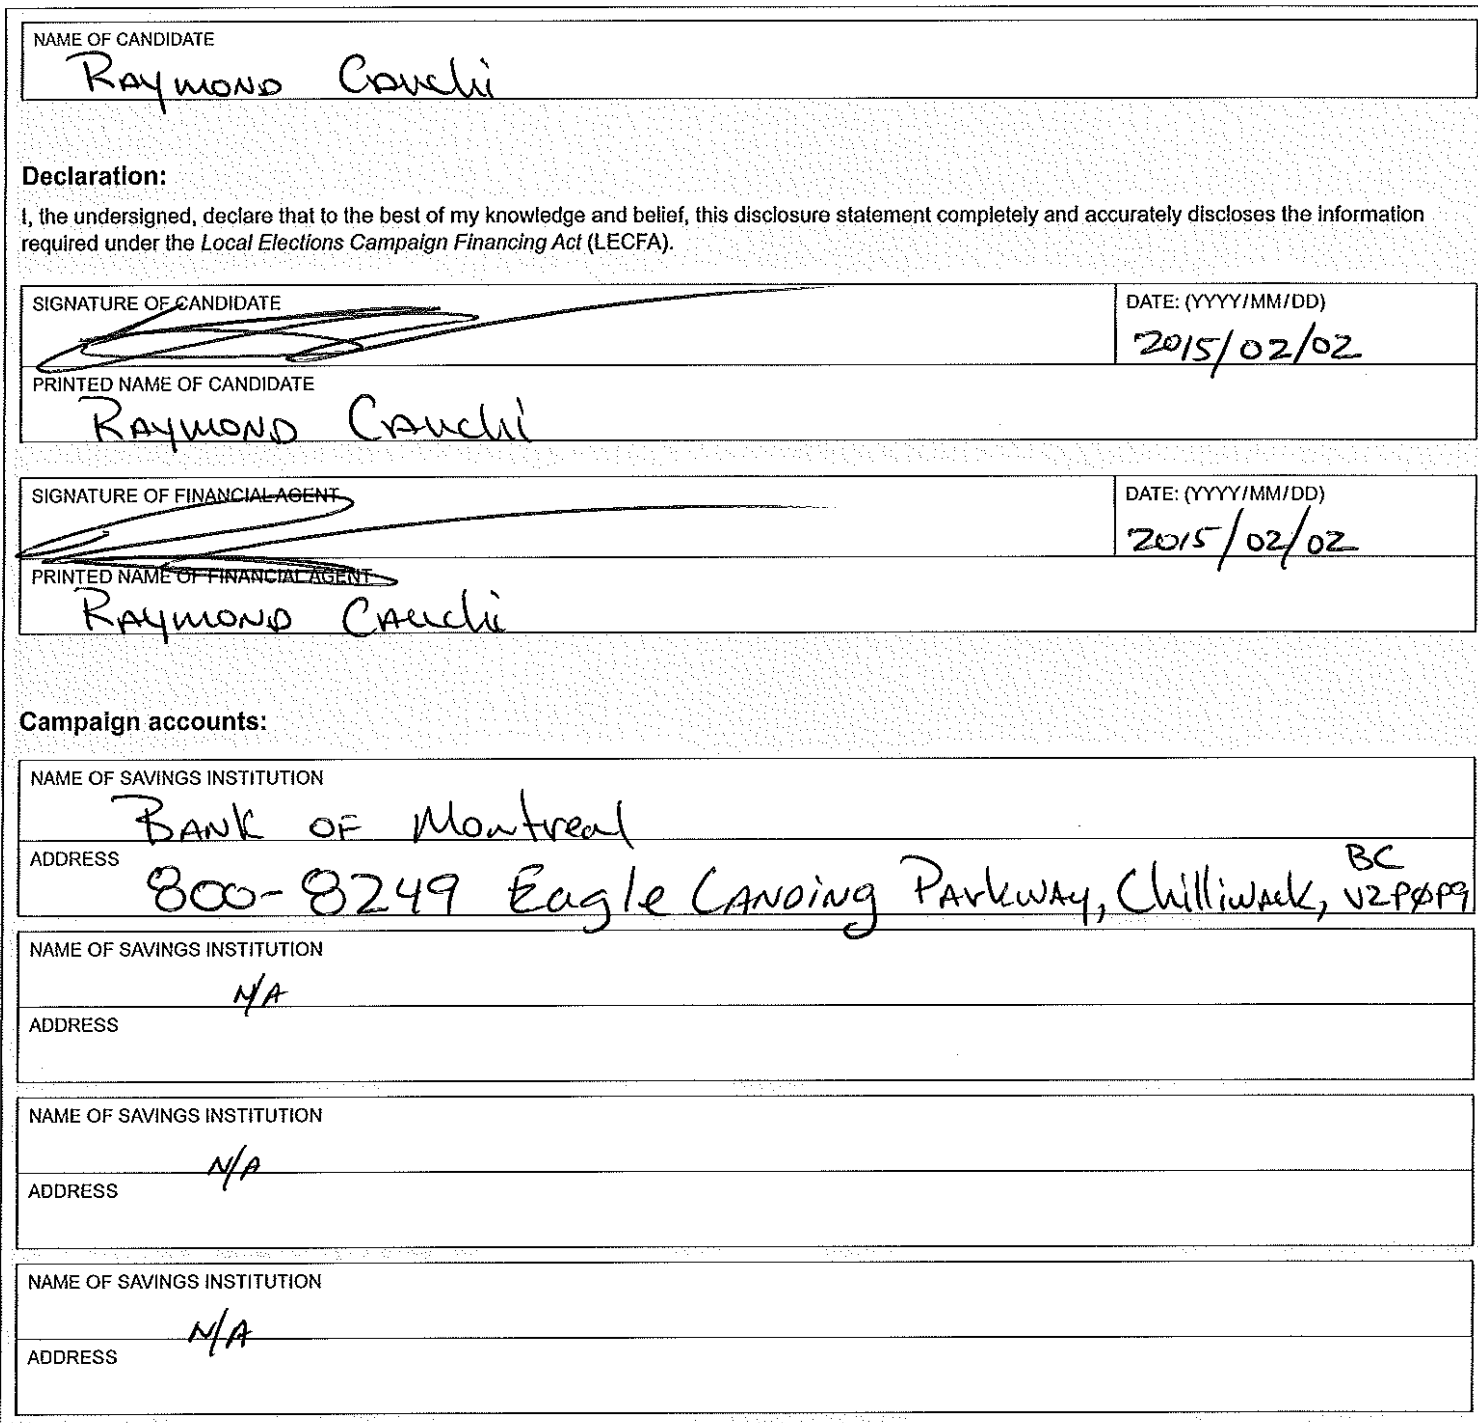 NAME OF CANDIDATE
RAYMOND CAUCHI
Declaration:
I, the undersigned, declare that to the best of my knowledge and belief, this disclosure statement completely and accurately discloses the information
required under the Local Elections Campaign Financing Act (LECFA).
SIGNATURE OF CANDIDATE
DATE: (YYYY/MM/DD)
2015/02/02
PRINTED NAME OF CANDIDATE
RAYMOND CAUCHI
SIGNATURE OF FINANCIAL AGENT
DATE: (YYYY/MM/DD)
2015/02/02
PRINTED NAME OF FINANCIAL AGENT
RAYMOND CAUCHI
Campaign accounts:
NAME OF SAVINGS INSTITUTION
BANK OF Montreal
ADDRESS
800-8249 Eagle LANDING PARKWAY, Chilliwack, BC V2P0P9
NAME OF SAVINGS INSTITUTION
N/A
ADDRESS
NAME OF SAVINGS INSTITUTION
N/A
ADDRESS
NAME OF SAVINGS INSTITUTION
N/A
ADDRESS